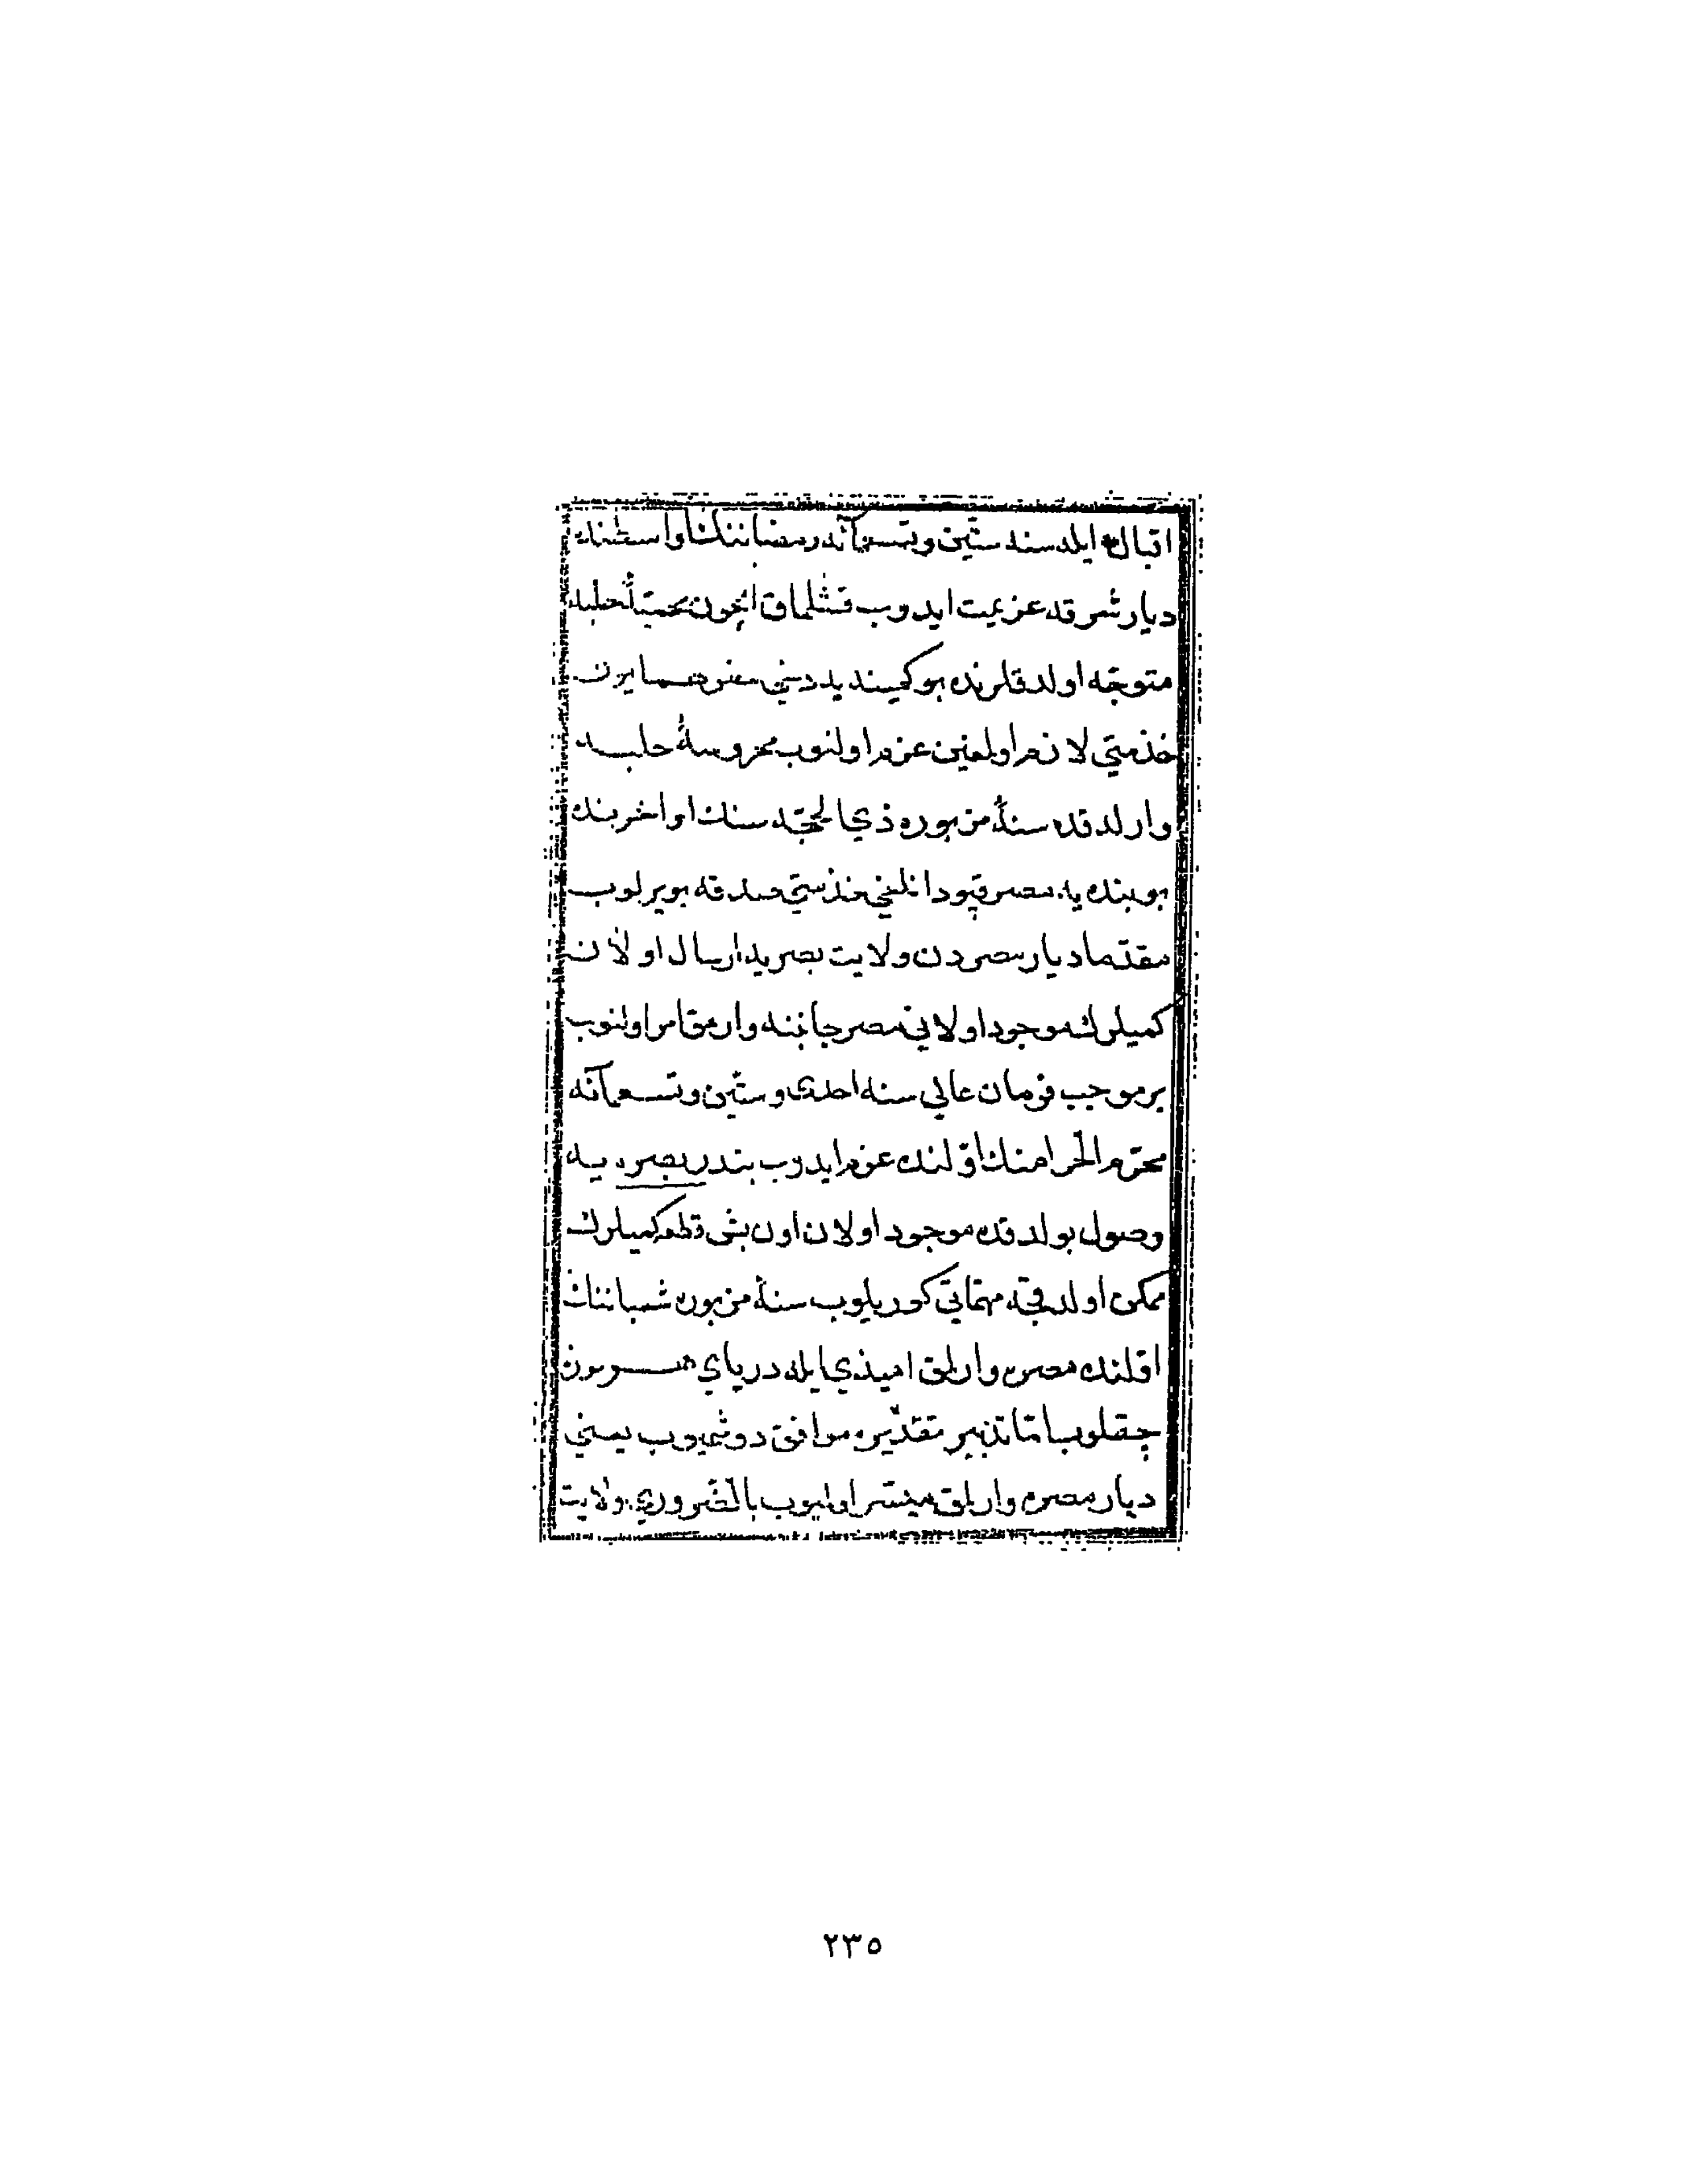 اقبال ايله سنه ستّين وتسعمائه رمضاننك اواسطنده
ديار شرقه عزيمت ايدوب قشلماق ايچون محميّهٔ حلبه
متوجّه اولدقلرنده بو كمينه يه دخي سفر همايون
خذمتي لازم اولمغين عزم اولنوب محروسهٔ حلبـــه
وارلدقده سنهٔ مزبوره ذي الحجّه سنك اواخرينده
بو بنده يه مصر قپودانلغي خذمتي صدقه بويرلوب
مقدّما ديار مصردن ولايت بصره يه ارسال اولان
كميلرك موجود اولاني مصر جانبنه وارمق امر اولنوب
بر موجب فرمان عالي سنه احدى وستّين وتسعمائه
محرّم الحرامنك اوّلنده عزم ايدوب بندر بصره يــه
وصول بولدقده موجود اولان اون بش قطعه كميلرك
ممكن اولدقچه مهمّاتي كوريلوب سنهٔ مزبوره شعباننك
اوّلنده مصره وارلمق اميذي ايله درياي هــرموزه
چقلوب امّا تدبير تقديره موافق دوشميوب يعني
ديار مصره وارلمق ميسّر اولميوب بالضّروري ولايت
٢٣٥